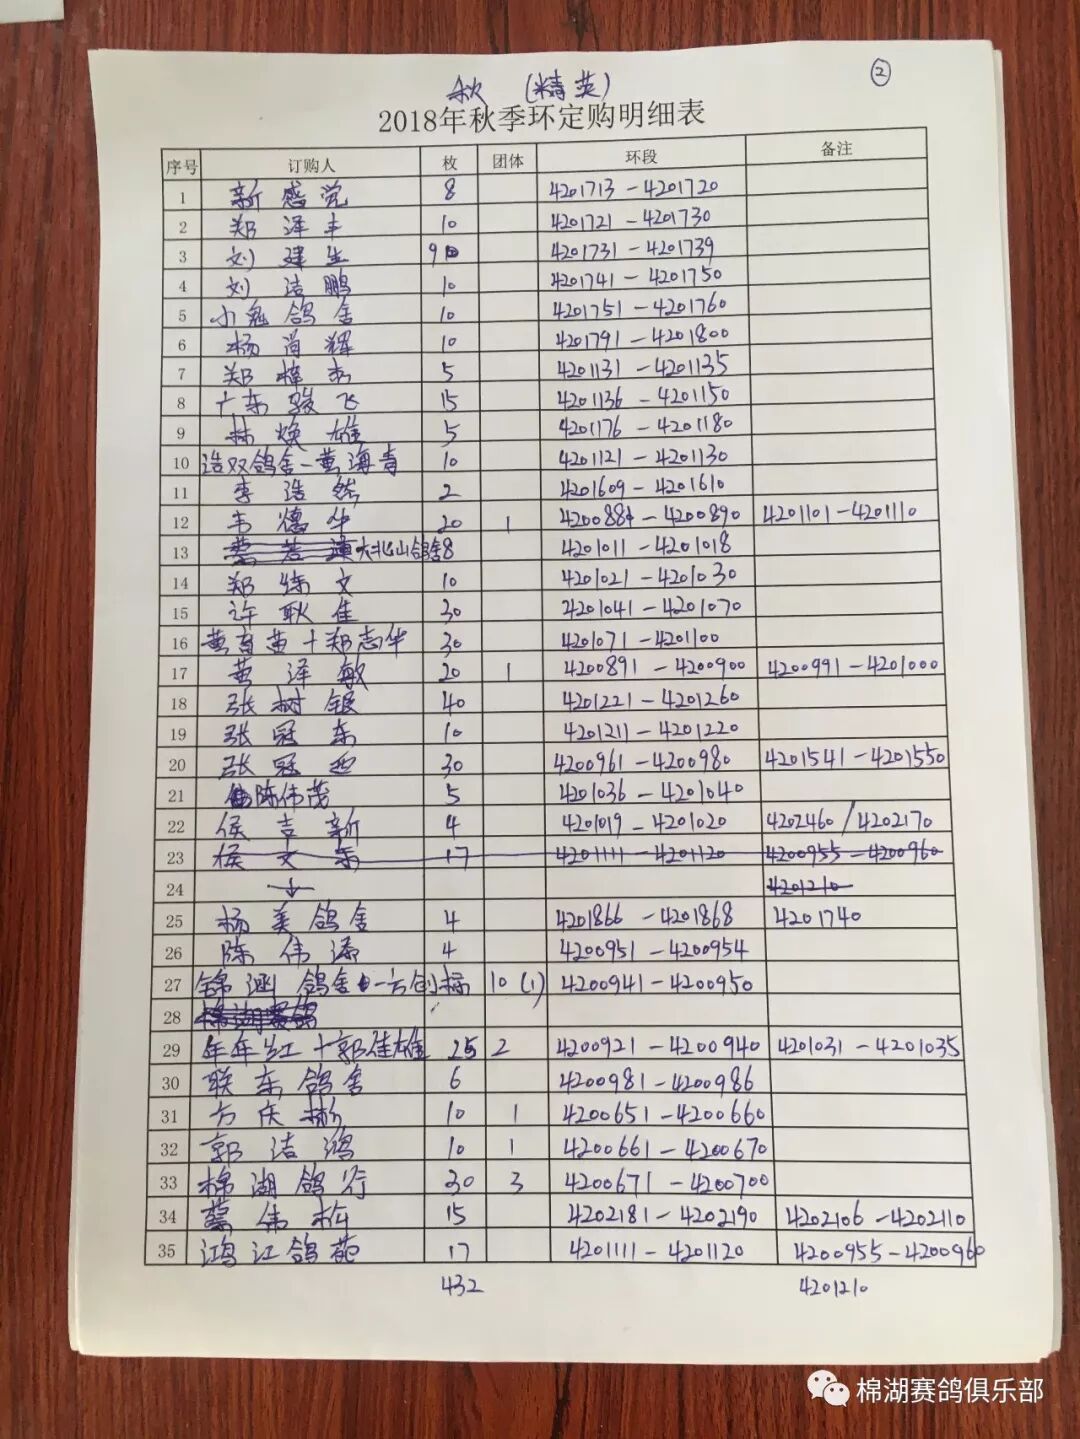 秋 (精英) ②
2018年秋季环定购明细表
序号 订购人 枚 团体 环段 备注
1 新感觉 8 4201713-4201720
2 郑泽丰 10 4201721-4201730
3 刘建生 9 4201731-4201739
4 刘洁鹏 10 4201741-4201750
5 小鬼鸽舍 10 4201751-4201760
6 杨 辉 10 4201791-4201800
7 郑 5 4201131-4201135
8 广东骏飞 15 4201136-4201150
9 林焕雄 5 4201176-4201180
10 浩双鸽舍-黄海青 10 4201121-4201130
11 李浩然 2 4201609-4201610
12 韦德华 20 1 4200881-4200890 4201101-4201110
13 大北山鸽舍 8 4201011-4201018
14 郑 文 10 4201021-4201030
15 许耿佳 30 4201041-4201070
16 黄 黄+郑志华 30 4201071-4201100
17 黄泽敏 20 1 4200891-4200900 4200991-4201000
18 张树银 40 4201221-4201260
19 张冠东 10 4201211-4201220
20 张冠 30 4200961-4200980 4201541-4201550
21 陈伟茂 5 4201036-4201040
22 侯吉新 4 4201019-4201020 4202460/4202170
23 侯文东 17 4201111-4201120 4200955-4200960
24 ↓ 4201210
25 杨美鸽舍 4 4201866-4201868 4201740
26 陈伟 4 4200951-4200954
27 锦涵鸽舍-方创 10 (1) 4200941-4200950
28
29 年年红+郭佳雄 25 2 4200921-4200940 4201031-4201035
30 联东鸽舍 6 4200981-4200986
31 方庆彬 10 1 4200651-4200660
32 郭洁鸿 10 1 4200661-4200670
33 棉湖鸽行 30 3 4200671-4200700
34 伟 15 4202181-4202190 4202106-4202110
35 鸿江鸽苑 17 4201111-4201120 4200955-4200960
432 4201210
棉湖赛鸽俱乐部